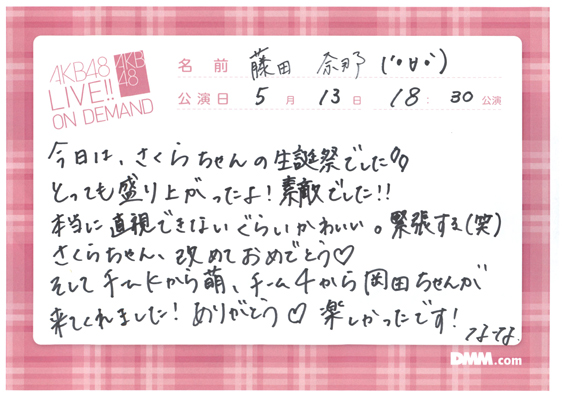 AKB48
LIVE!!
ON DEMAND
AKB
48
名前 藤田 奈那 (°∀°)
公演日 5月 13日 18:30 公演
今日は、さくらちゃんの生誕祭でした
とっても盛り上がったよ!素敵でした!!
本当に直視できないぐらいかわいい。緊張する(笑)
さくらちゃん、改めておめでとう♡
そしてチームKから萌、チーム4から岡田ちゃんが
来てくれました!ありがとう♡ 楽しかったです!
なな.
DMM.com